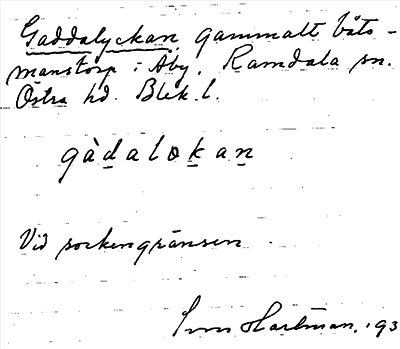 Gaddalyckan, gammalt båts-
manstorp i Åby, Ramdala sn.
Östra hd. Blek.l.
gàdalokan
Vid sockengränsen
Sven Hartman, 193